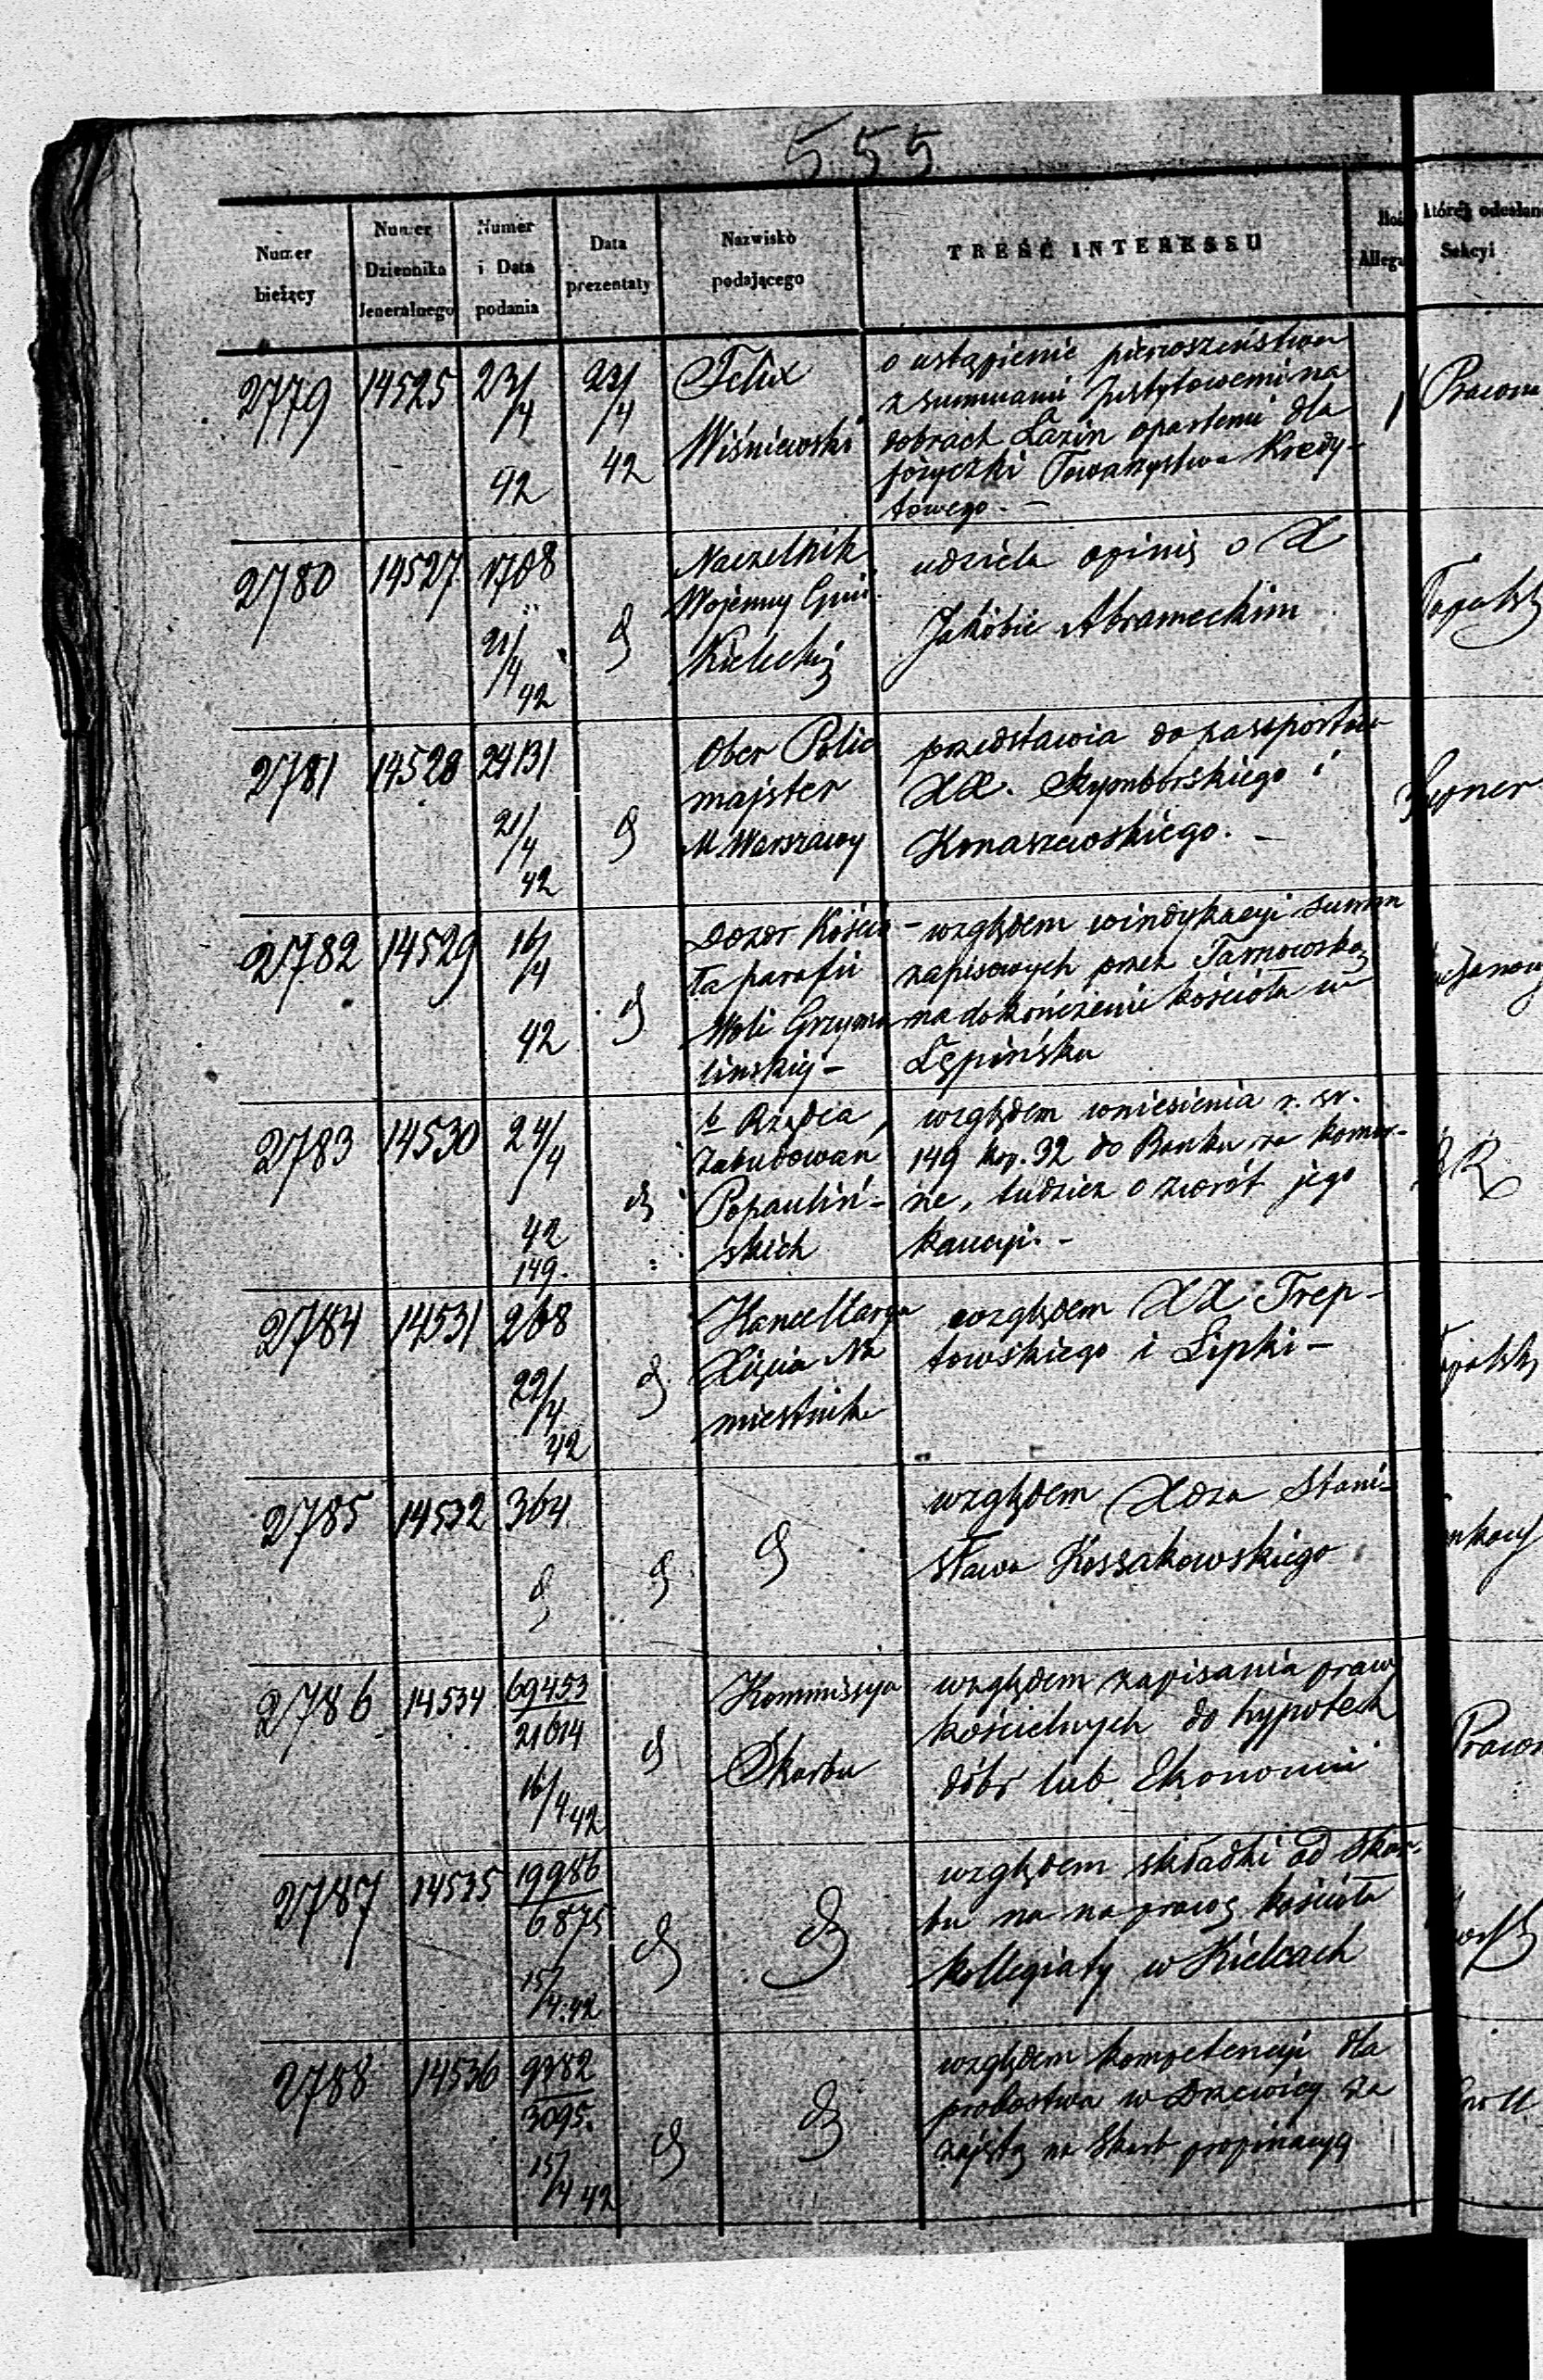 555
Numer bieżący
Numer Dziennika Jeneralnego
Numer i Data podania
Data prezentaty
Nazwisko podającego
TREŚĆ INTERESSU
Allega
której odesłan
Sekcyi
2779 14525 23/4 42
23/4 42
Felix
Wiśniewski
o ustąpienie pierwszeństwa
z summami Instytowemi na
dobrach Łazin opartemi dla
pożyczki Towarzystwa Kredy-
towego. —
2780 14527 1708
21/4 42
Naczelnik
Wojenny
Kielecki
udziela opinię o X
Jakóbie Abrameckim
2781 14528 24131
21/4 42
Ober Polic
majster
M Warszawy
przedstawia do passportów
XX. Szymborskiego i
Konaszewskiego. —
2782 14529 16/4 42
Dozór Kościo
ła parafii
Woli Grzyma
linskiej —
— względem windykacyi summ
zapisowych przez Tarnowską
na dokończenie kościoła w
Łępińsku
2783 14530 24/4 42
149.
b Rządca
Zabudowań
Popauliń-
skich
względem wniesienia r. sr.
149 kop. 32 do Banku za komor-
ne, tudzież o zwrót jego
kaucyi. —
2784 14531 268
22/4 42
Kancellarya
Xięcia Na
miestnika
względem XX Trep-
towskiego i Lipki —
2785 14532 364
względem Xdza Stani-
sława Kossakowskiego
2786 14534 69453
21614
16/4 42
Kommissyja
Skarbu
względem zapisania praw
kościelnych do hypotek
dóbr lub Ekonomii
Prawn
2787 14535 19986
6875
15/4 42
względem składki od Skar-
bu na naprawę kościoła
kollegiaty w Kielcach
2788 14536 9982
3095.
15/4 42
względem kompetencyi dla
probostwa w Drzewicy za
zajętą na Skarb propinacyą